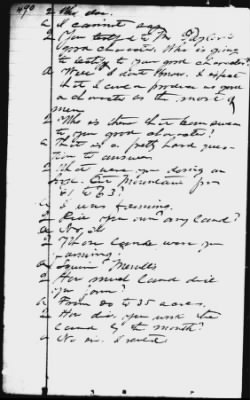 490
Q
A I cannot say
Q You testified to Mr. Taylor's
good character. Who is going
to testify to your good character?
A Well I don't know. I expect
that I can produce as good
a character as the most of
men.
Q Who is there that can swear
to your good character?
A That is a pretty hard ques-
tion to answer
Q What were you doing on
Mountain from
'61 to '63?
A I was farming.
Q Did you own any land?
A No, sir
Q Whose lands were you
farming?
A Squire
Q How much land did
you farm?
A From 30 to 35 acres.
Q How did you work the
land by the month?
A No sir. I rented